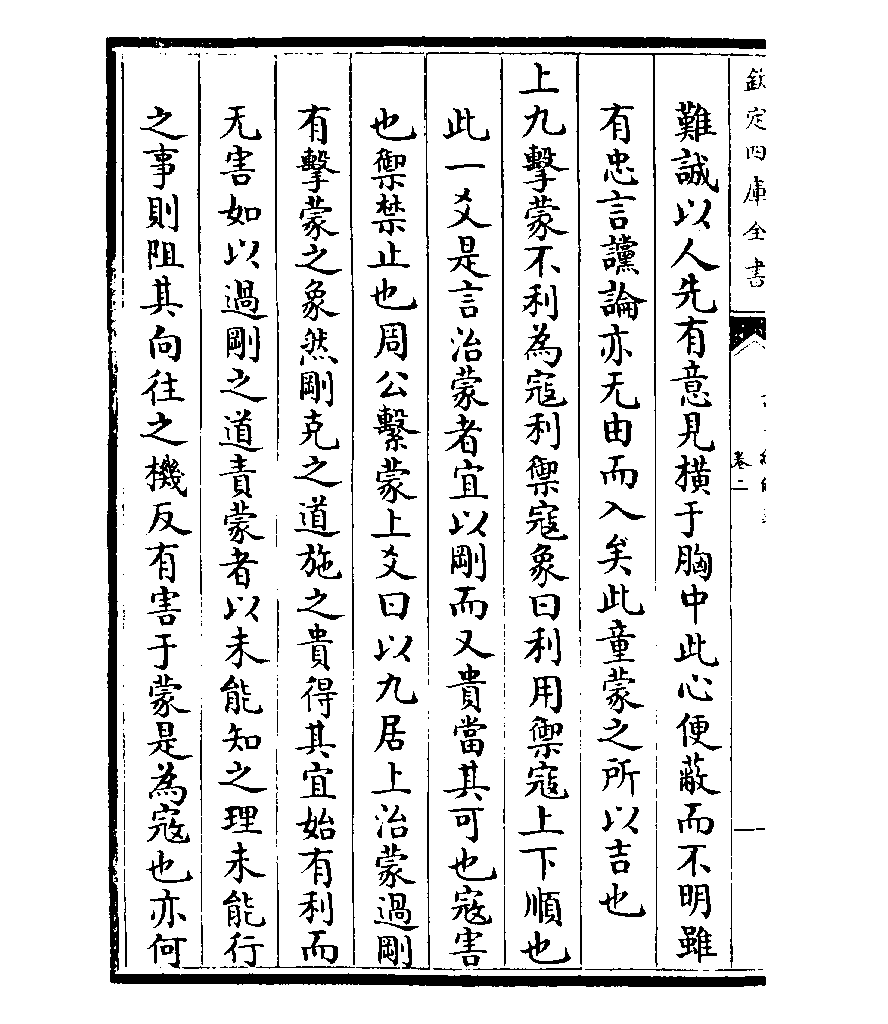 欽定四庫全書
卷二
難誠以人先有意見橫于胸中此心便蔽而不明雖
有忠言讜論亦无由而入矣此童蒙之所以吉也
上九擊蒙不利為寇利禦寇象曰利用禦寇上下順也
此一爻是言治蒙者宜以剛而又貴當其可也寇害
也禦禁止也周公繫蒙上爻曰以九居上治蒙過剛
有擊蒙之象然剛克之道施之貴得其宜始有利而
无害如以過剛之道責蒙者以未能知之理未能行
之事則阻其向往之機反有害于蒙是為寇也亦何